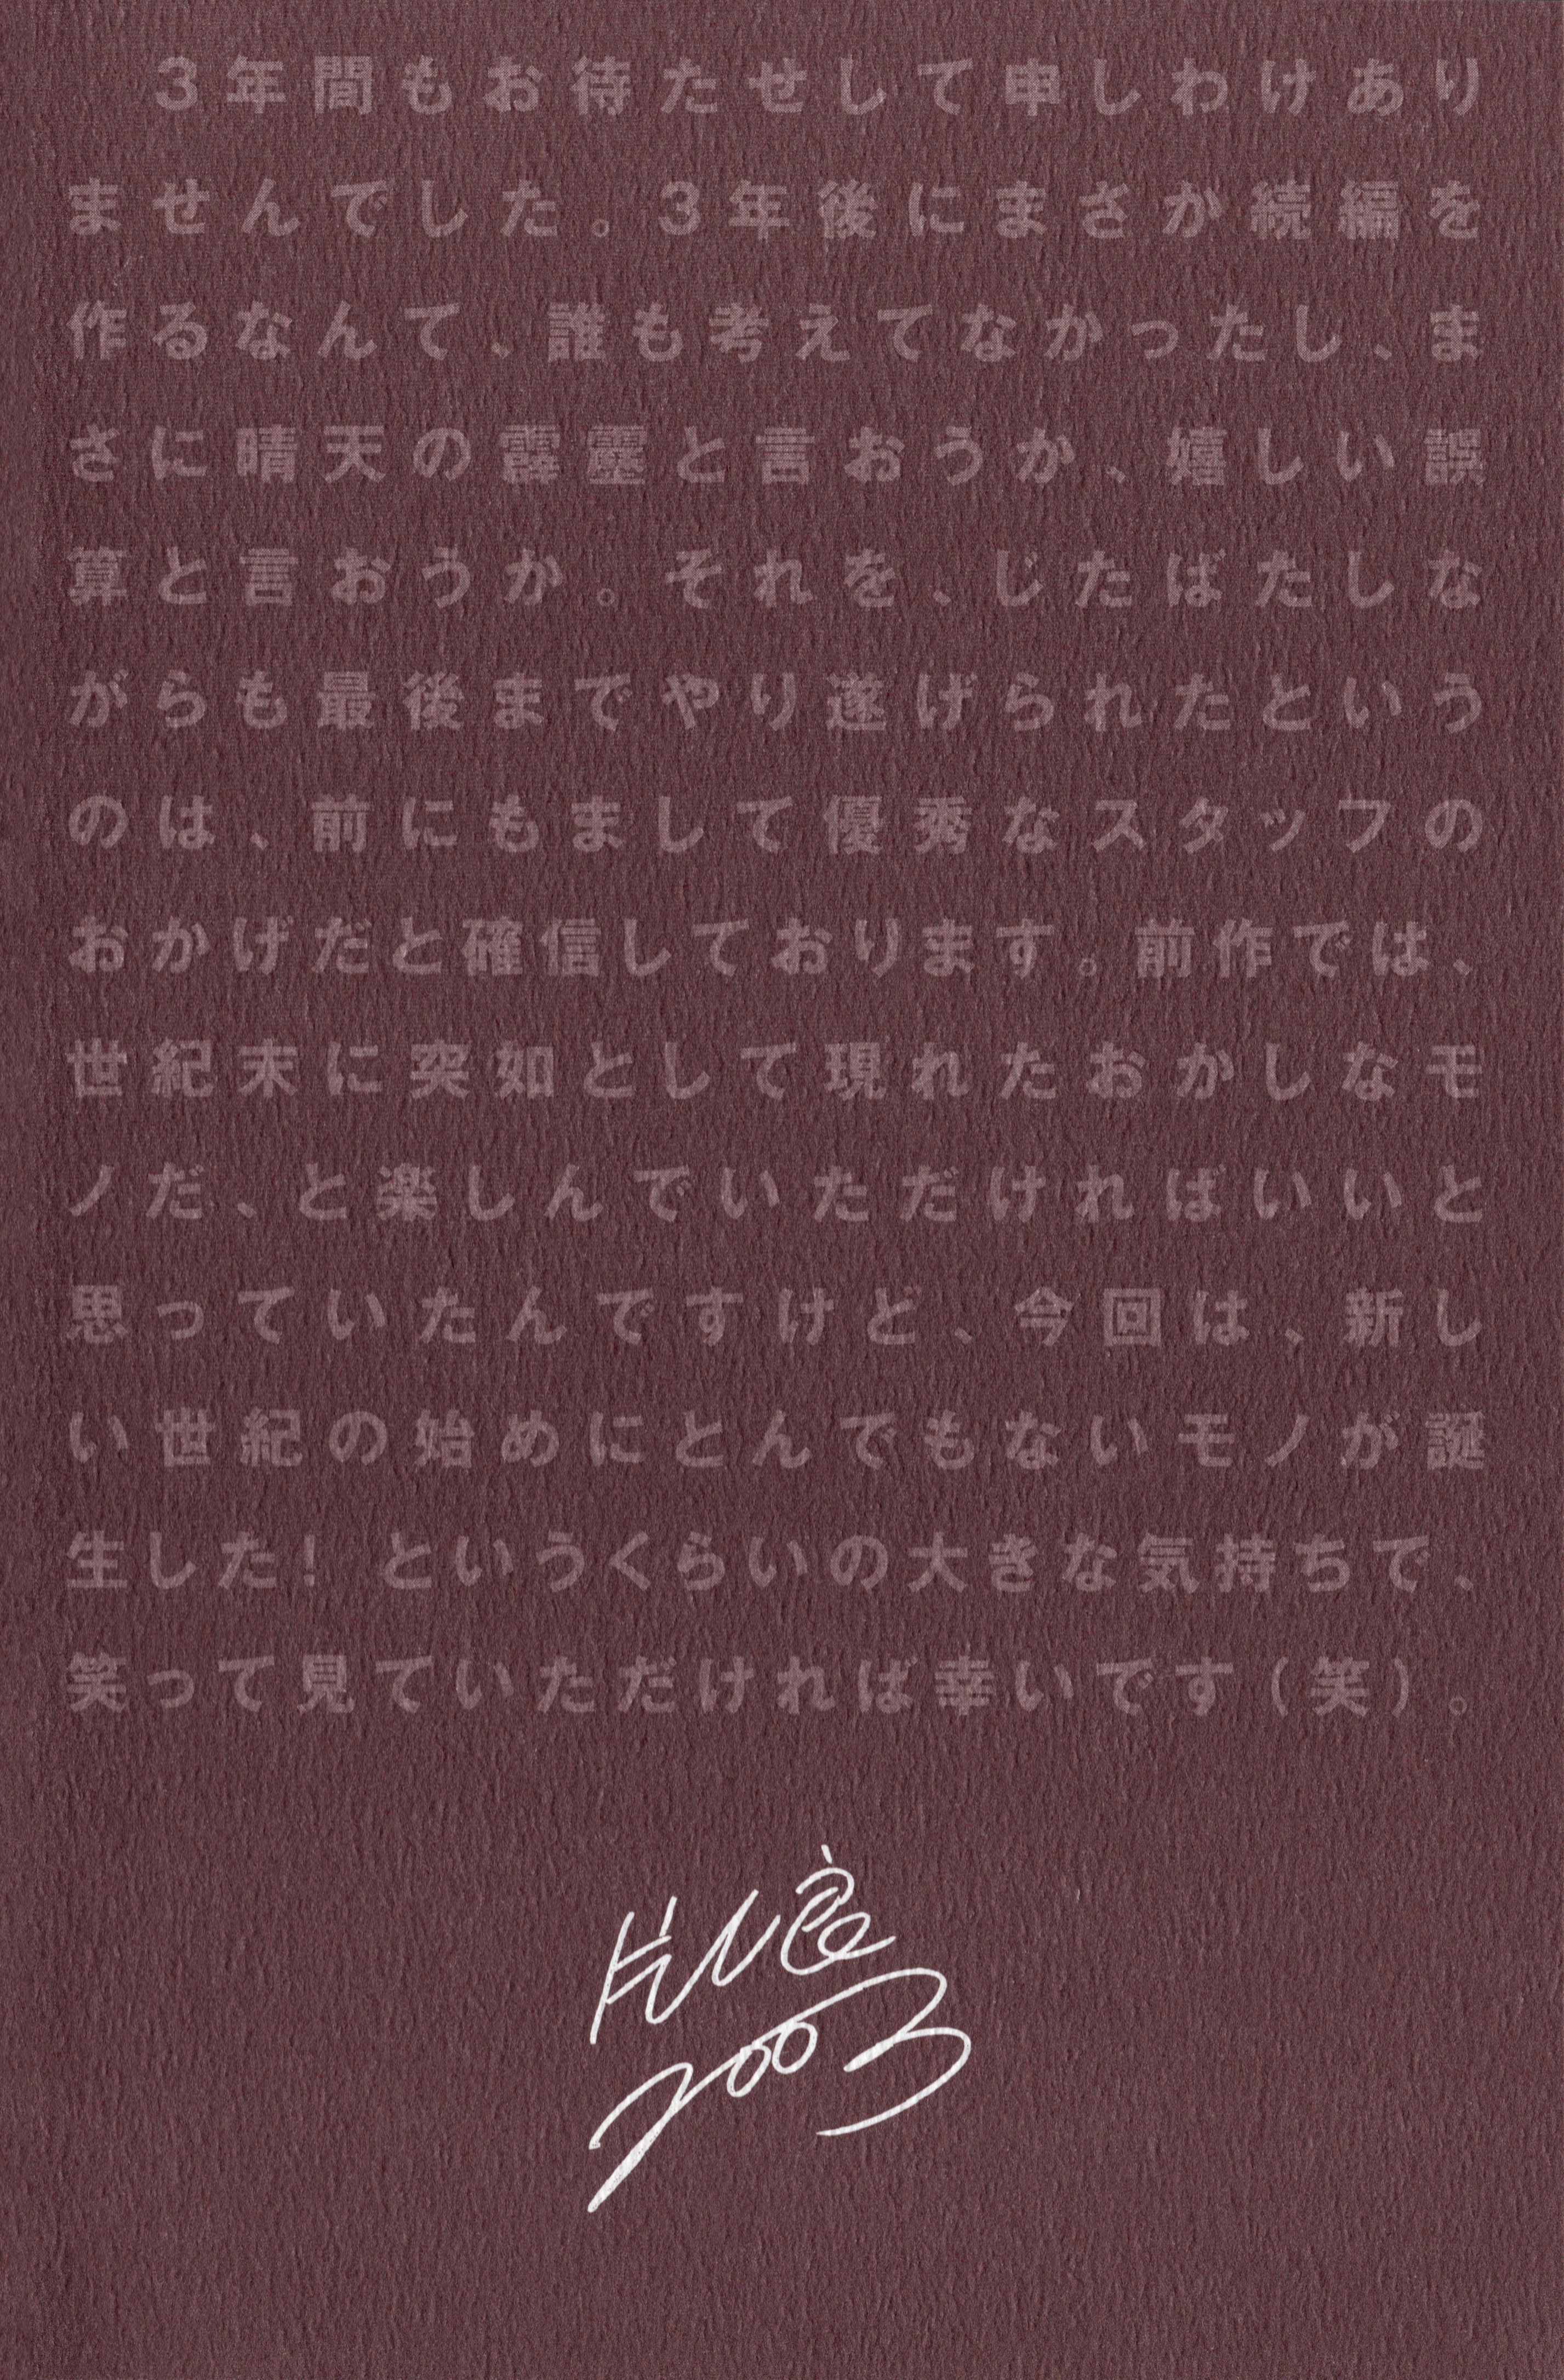 3年間もお待たせして申しわけあり
ませんでした。3年後にまさか続編を
作るなんて、誰も考えてなかったし、ま
さに晴天の霹靂と言おうか、嬉しい誤
算と言おうか。それを、じたばたしな
がらも最後までやり遂げられたという
のは、前にもまして優秀なスタッフの
おかげだと確信しております。前作では、
世紀末に突如として現れたおかしなモ
ノだ、と楽しんでいただければいいと
思っていたんですけど、今回は、新し
い世紀の始めにとんでもないモノが誕
生した！というくらいの大きな気持ちで、
笑って見ていただければ幸いです（笑）。
2003